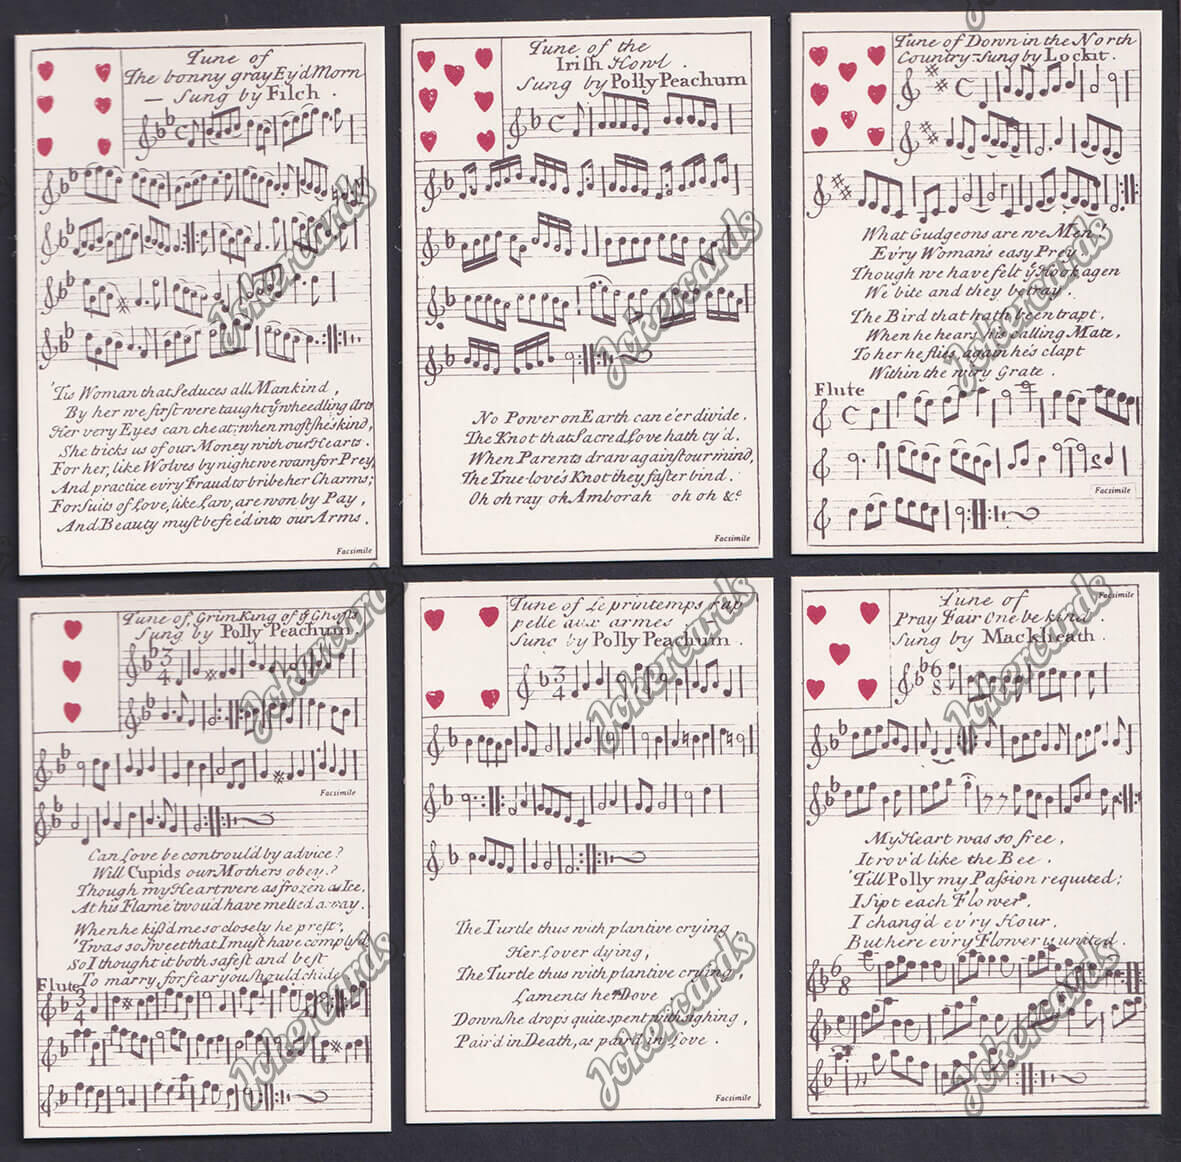 Tune of
The bonny gray Ey'd Morn
— Sung by Filch .
'Tis Woman that seduces all Mankind,
By her we first were taught ẏ wheedling Arts
Her very Eyes can cheat; when most she's kind,
She tricks us of our Money with our Hearts .
For her, like Wolves by night we roam for Prey
And practice ev'ry Fraud to bribe her Charms;
For Suits of Love, like Law, are won by Pay ,
And Beauty must be fee'd into our Arms .
Facsimile
Tune of the
Irish Howl
Sung by Polly Peachum
No Power on Earth can e'er divide,
The Knot that Sacred Love hath ty'd .
When Parents draw against our mind,
The True-love's Knot they faster bind .
Oh oh ray oh Amborah oh oh &c
Facsimile
Tune of Down in the North
Country: Sung by Lockit .
What Gudgeons are we Men!
Ev'ry Woman's easy Prey
Though we have felt ẏ Hook agen
We bite and they betray .
The Bird that hath been trapt,
When he hears his calling Mate,
To her he flies, again he's clapt
Within the wiry Grate .
Flute
Facsimile
Tune of, Grim King of ẏ Ghosts
Sung by Polly Peachum.
Facsimile
Can Love be controul'd by advice?
Will Cupids our Mothers obey?
Though my Heart were as frozen as Ice,
At his Flame 'twou'd have melted away.
When he kiss'd me so closely he prest,
'Twas so sweet that I must have comply'd
So I thought it both safest and best
To marry for fear you should chide
Flute
Tune of Le printemps rap
pelle aux armes
Sung by Polly Peachum .
The Turtle thus with plantive crying,
Her Lover dying,
The Turtle thus with plantive crying,
Laments her Dove
Down she drops quite spent with sighing,
Pair'd in Death, as pair'd in Love .
Facsimile
Facsimile
Tune of
Pray Fair One be kind
Sung by Mackheath .
My Heart was so free,
It rov'd like the Bee .
'Till Polly my Passion requited;
I sipt each Flower,
I chang'd ev'ry Hour,
But here ev'ry Flower is united .
Jokercards
Jokercards
Jokercards
Jokercards
Jokercards
Jokercards
Jokercards
Jokercards
Jokercards